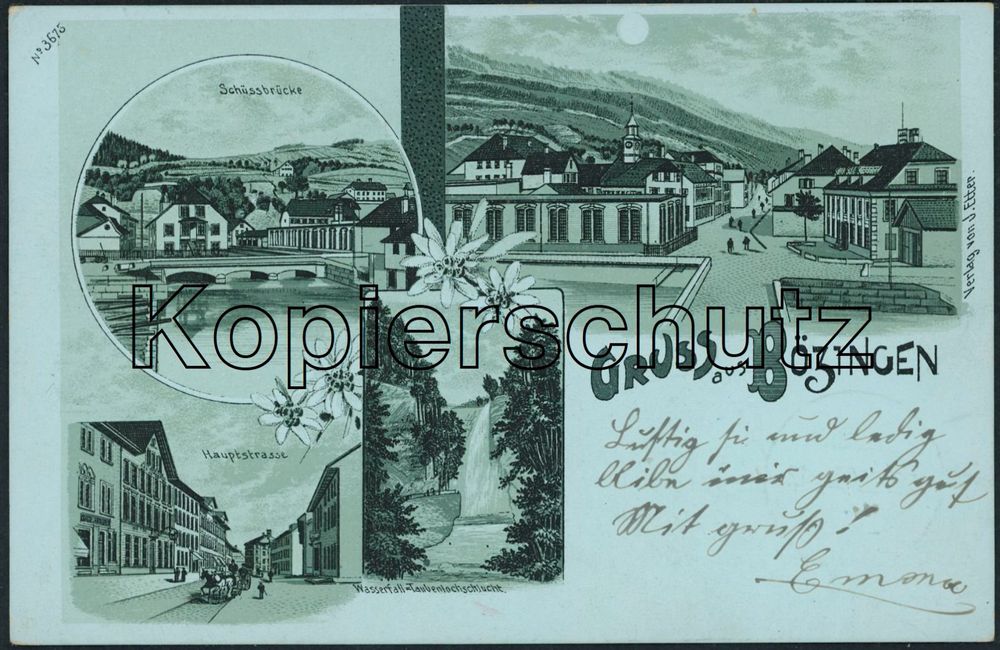 No 3675
Schüssbrücke
Verlag von J. Etter.
Kopierschutz
Gruss aus Bözingen
Hauptstrasse
Wasserfall-Taubenlochschlucht.
Luftig si und ledig
blibe mir geits guf
Mit gruß!
Emma